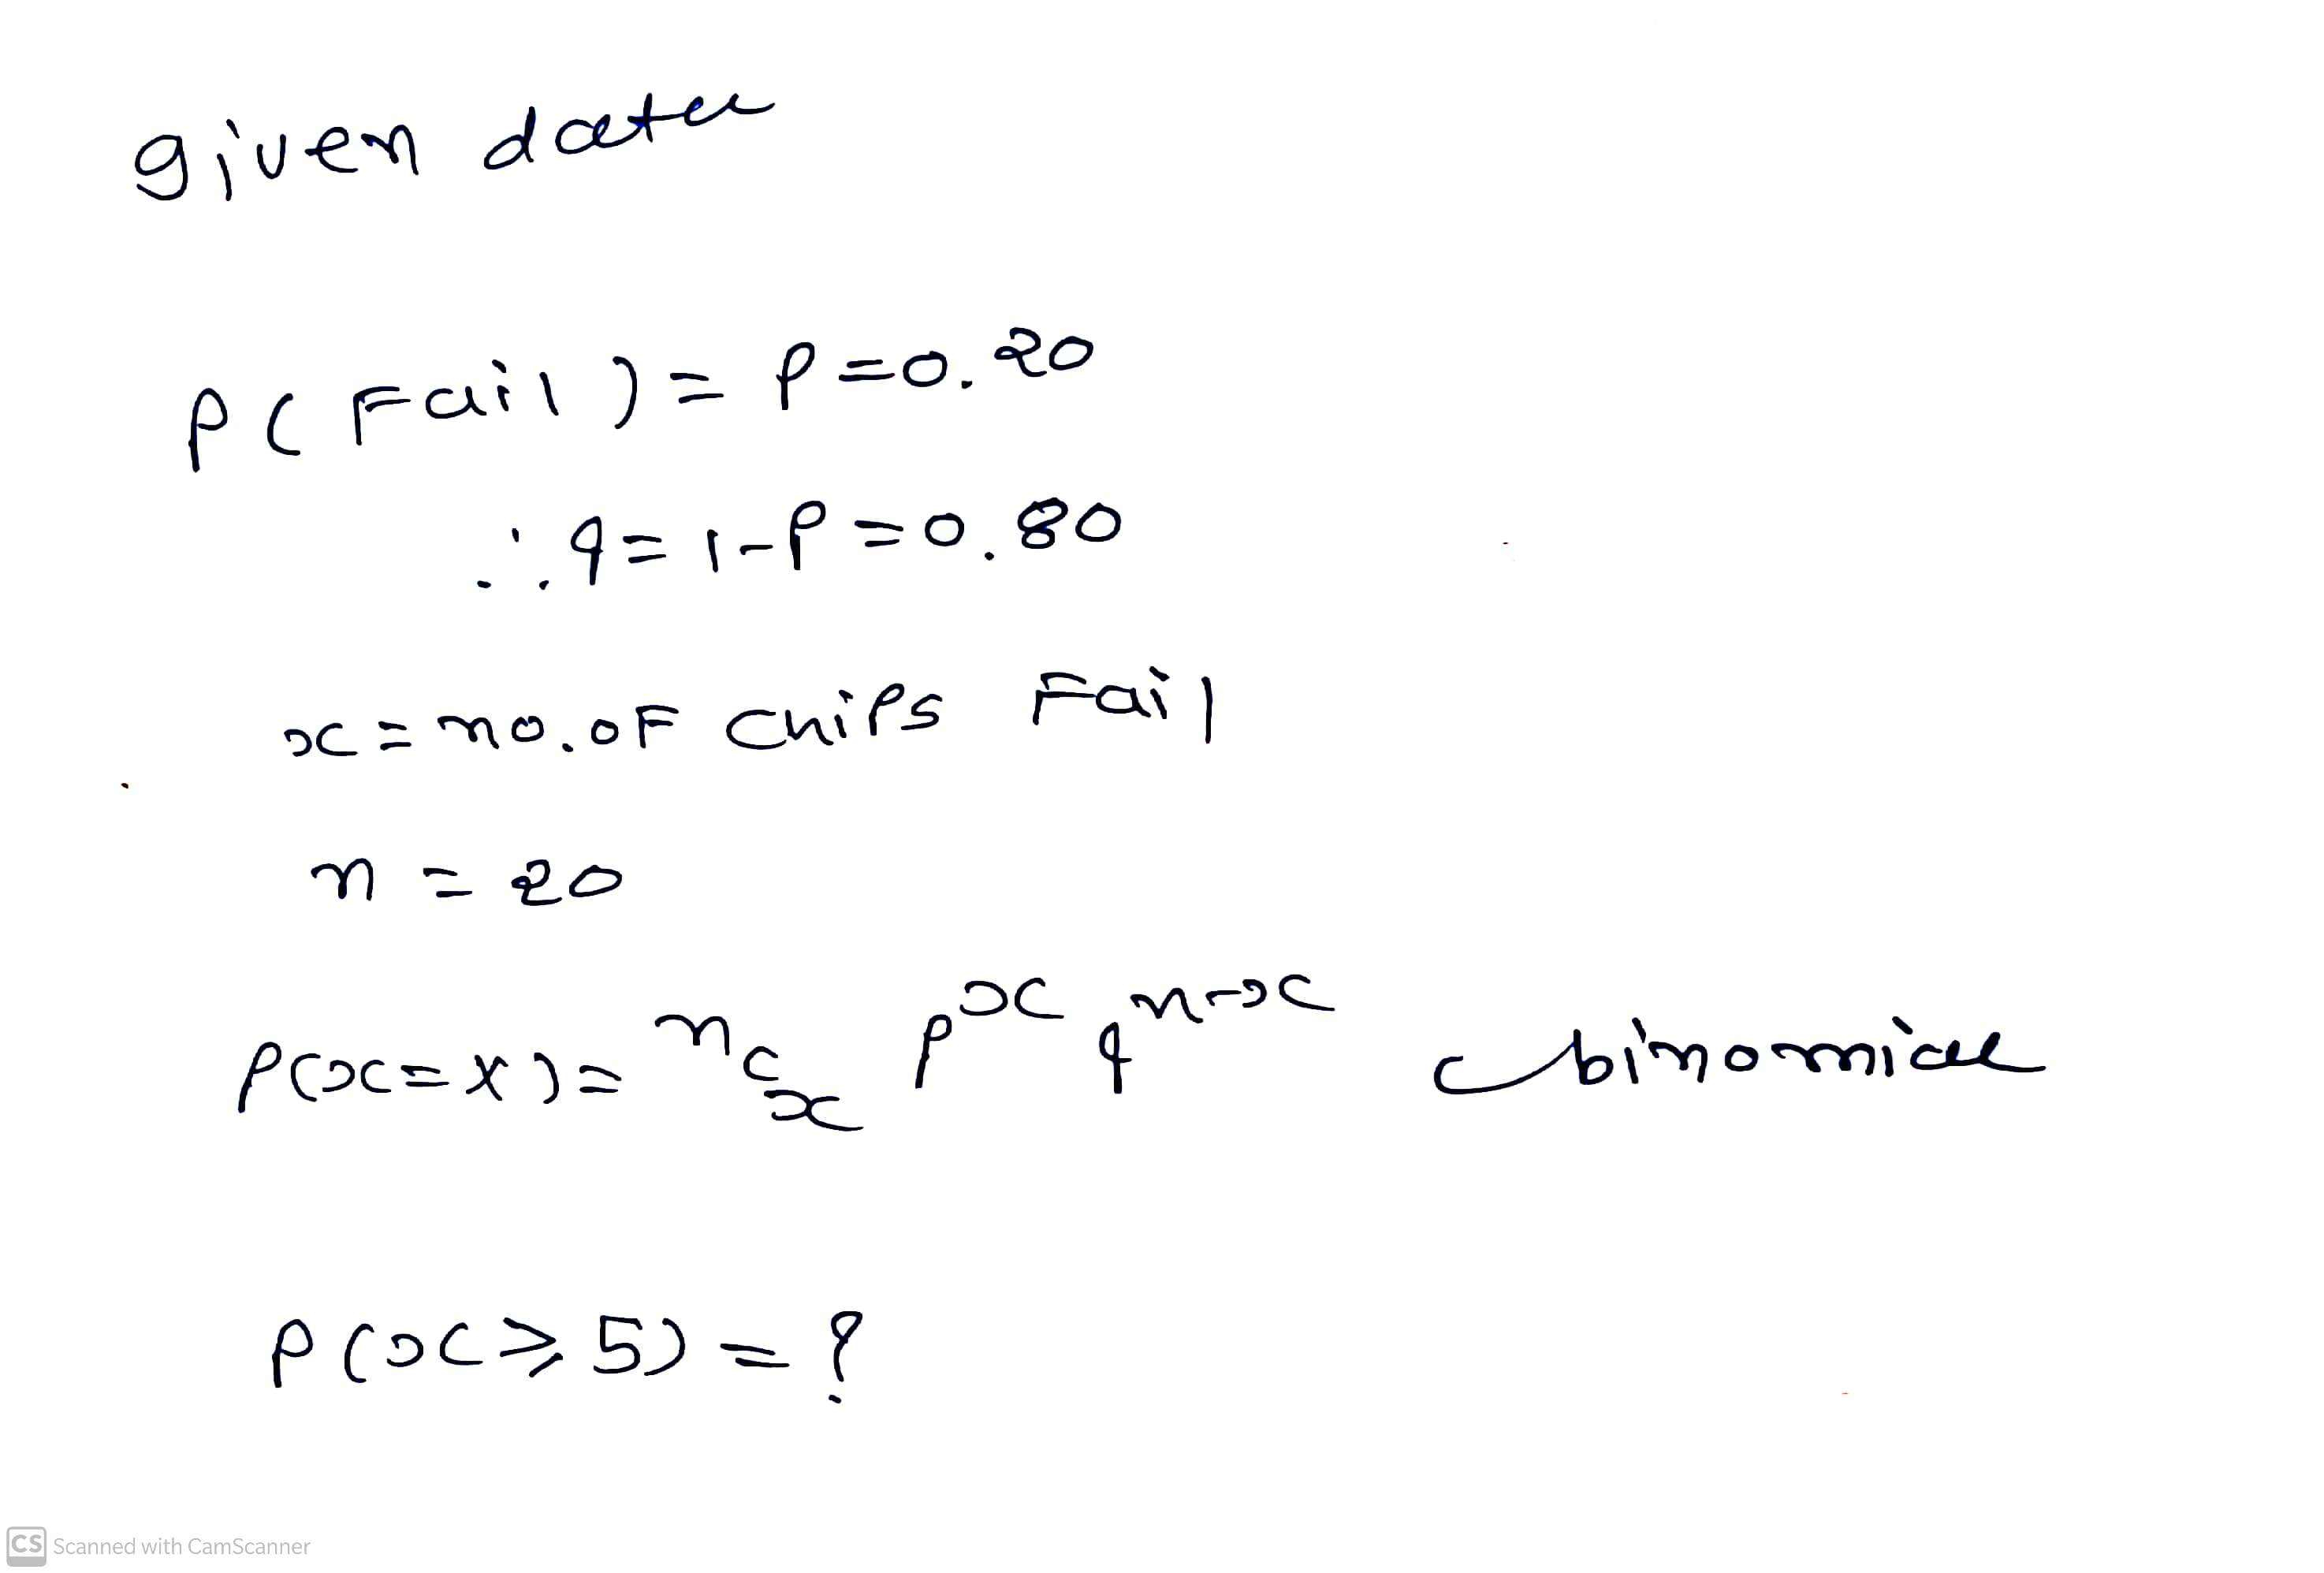 given data
P(Fail) = p = 0.20
∴ q = 1 - p = 0.80
x = no. of chips Fail
n = 20
P(x = x) = ⁿCₓ pˣ qⁿ⁻ˣ binomial
P(x ≥ 5) = ?
CS Scanned with CamScanner